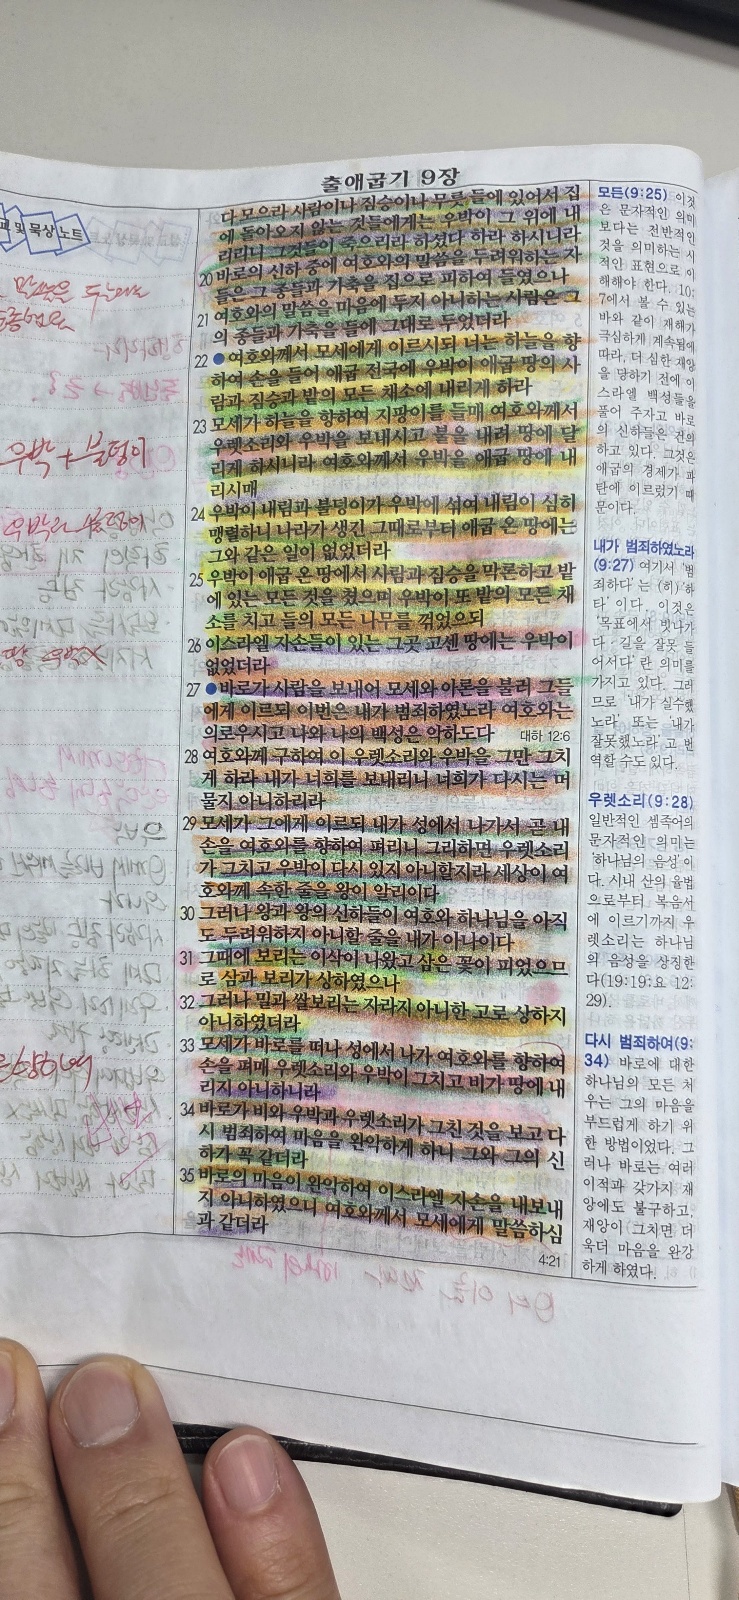 출애굽기 9장
및 묵상노트
우박+불덩이
다 모으라 사람이나 짐승이나 무릇 들에 있어서 집
에 돌아오지 않는 것들에게는 우박이 그 위에 내
리리니 그것들이 죽으리라 하셨다 하라 하시니라
20 바로의 신하 중에 여호와의 말씀을 두려워하는 자
들은 그 종들과 가축을 집으로 피하여 들였으나
21 여호와의 말씀을 마음에 두지 아니하는 사람은 그
의 종들과 가축을 들에 그대로 두었더라
22 ●여호와께서 모세에게 이르시되 너는 하늘을 향
하여 손을 들어 애굽 전국에 우박이 애굽 땅의 사
람과 짐승과 밭의 모든 채소에 내리게 하라
23 모세가 하늘을 향하여 지팡이를 들매 여호와께서
우렛소리와 우박을 보내시고 불을 내려 땅에 달
리게 하시니라 여호와께서 우박을 애굽 땅에 내
리시매
24 우박이 내림과 불덩이가 우박에 섞여 내림이 심히
맹렬하니 나라가 생긴 그때로부터 애굽 온 땅에는
그와 같은 일이 없었더라
25 우박이 애굽 온 땅에서 사람과 짐승을 막론하고 밭
에 있는 모든 것을 쳤으며 우박이 또 밭의 모든 채
소를 치고 들의 모든 나무를 꺾었으되
26 이스라엘 자손들이 있는 그곳 고센 땅에는 우박이
없었더라
27 ●바로가 사람을 보내어 모세와 아론을 불러 그들
에게 이르되 이번은 내가 범죄하였노라 여호와는
의로우시고 나와 나의 백성은 악하도다 대하 12:6
28 여호와께 구하여 이 우렛소리와 우박을 그만 그치
게 하라 내가 너희를 보내리니 너희가 다시는 머
물지 아니하리라
29 모세가 그에게 이르되 내가 성에서 나가서 곧 내
손을 여호와를 향하여 펴리니 그리하면 우렛소리
가 그치고 우박이 다시 있지 아니할지라 세상이 여
호와께 속한 줄을 왕이 알리이다
30 그러나 왕과 왕의 신하들이 여호와 하나님을 아직
도 두려워하지 아니할 줄을 내가 아나이다
31 그때에 보리는 이삭이 나왔고 삼은 꽃이 피었으므
로 삼과 보리가 상하였으나
32 그러나 밀과 쌀보리는 자라지 아니한 고로 상하지
아니하였더라
33 모세가 바로를 떠나 성에서 나가 여호와를 향하여
손을 펴매 우렛소리와 우박이 그치고 비가 땅에 내
리지 아니하니라
34 바로가 비와 우박과 우렛소리가 그친 것을 보고 다
시 범죄하여 마음을 완악하게 하니 그와 그의 신
하가 꼭 같더라
35 바로의 마음이 완악하여 이스라엘 자손을 내보내
지 아니하였으니 여호와께서 모세에게 말씀하심
과 같더라
4:21
모든(9:25) 이것
은 문자적인 의미
보다는 전반적인
것을 의미하는 시
적인 표현으로 이
해해야 한다. 10:
7에서 볼 수 있는
바와 같이 재해가
극심하게 계속됨에
따라, 더 심한 재앙
을 당하기 전에 이
스라엘 백성들을
풀어 주자고 바로
의 신하들은 건의
하고 있다. 그것은
애굽의 경제가 파
탄에 이르렀기 때
문이다.
내가 범죄하였노라
(9:27) 여기서 '범
죄하다'는 (히)'하
타'이다. 이것은
'목표에서 빗나가
다·길을 잘못 들
어서다'란 의미를
가지고 있다. 그러
므로 '내가 실수했
노라' 또는 '내가
잘못했노라'고 번
역할 수도 있다.
우렛소리(9:28)
일반적인 셈족어의
문자적인 의미는
'하나님의 음성'이
다. 시내 산의 율법
으로부터 복음서
에 이르기까지 우
렛소리는 하나님
의 음성을 상징한
다(19:19;요 12:
29).
다시 범죄하여(9:
34) 바로에 대한
하나님의 모든 처
우는 그의 마음을
부드럽게 하기 위
한 방법이었다. 그
러나 바로는 여러
이적과 갖가지 재
앙에도 불구하고,
재앙이 그치면 더
욱더 마음을 완강
하게 하였다.